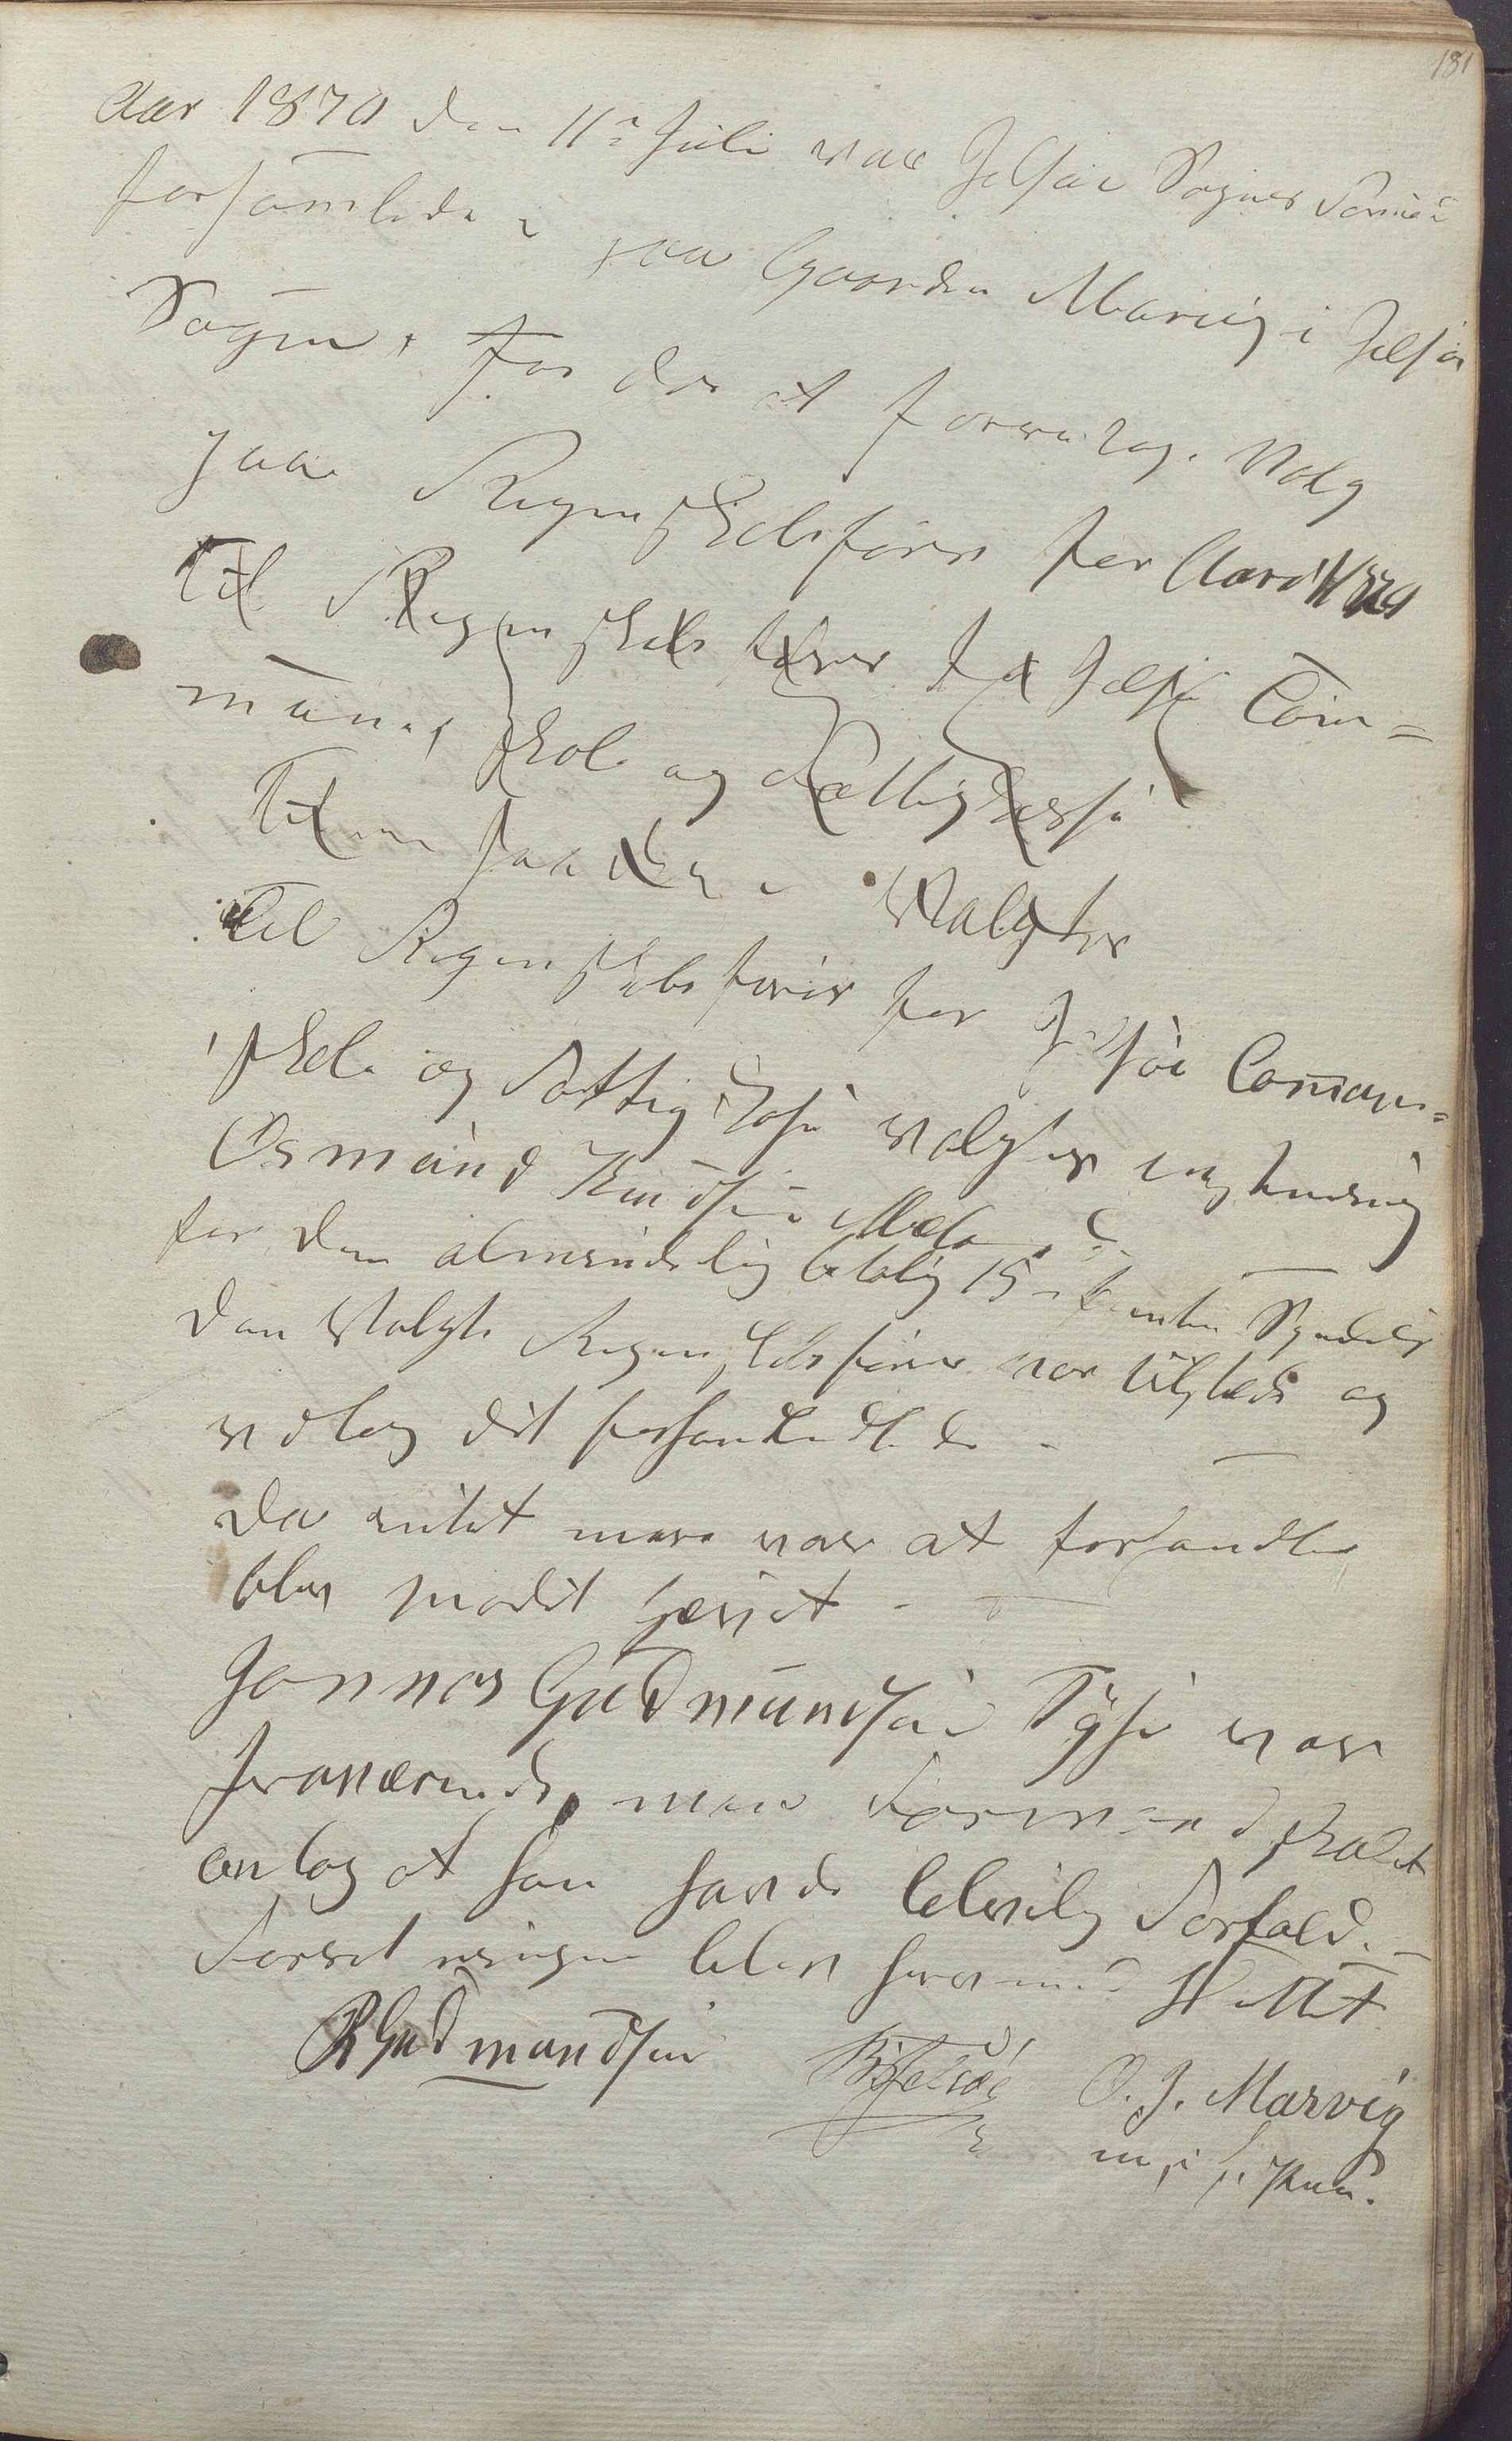 181
Aar 1870 den 11te Juli var Jelsøe Sogns Formænd
forsamlede paa Gaarden Marvig i Jelsøe
Sogn, for der at foretage Valg
paa Regnskabsfører for Aaret 1870
Til Regnskabsfører for Jelsøe Com=
muner, Skole og Fattigkasse
Valgtes
Til Regnskabsfører for Jelsøe Commun=
Skole og Fattigkasse valgtes
Osmund Knudsen
for den almindelig betaling 15 femten Spesidaler
den Valgte Regnskabsfører var tilstede og
vedtog det forhandlede.
Da intet mere var at forhandle
blev mødet hævet.
Johannes Gudmundsen Tysse var
fraværende, men Formandskabet
antog at han havde lovlig Forfald.
Forretningen blev hermed Sluttet
R Gudmundsen
O. J. Marvig
m. p. Pen.